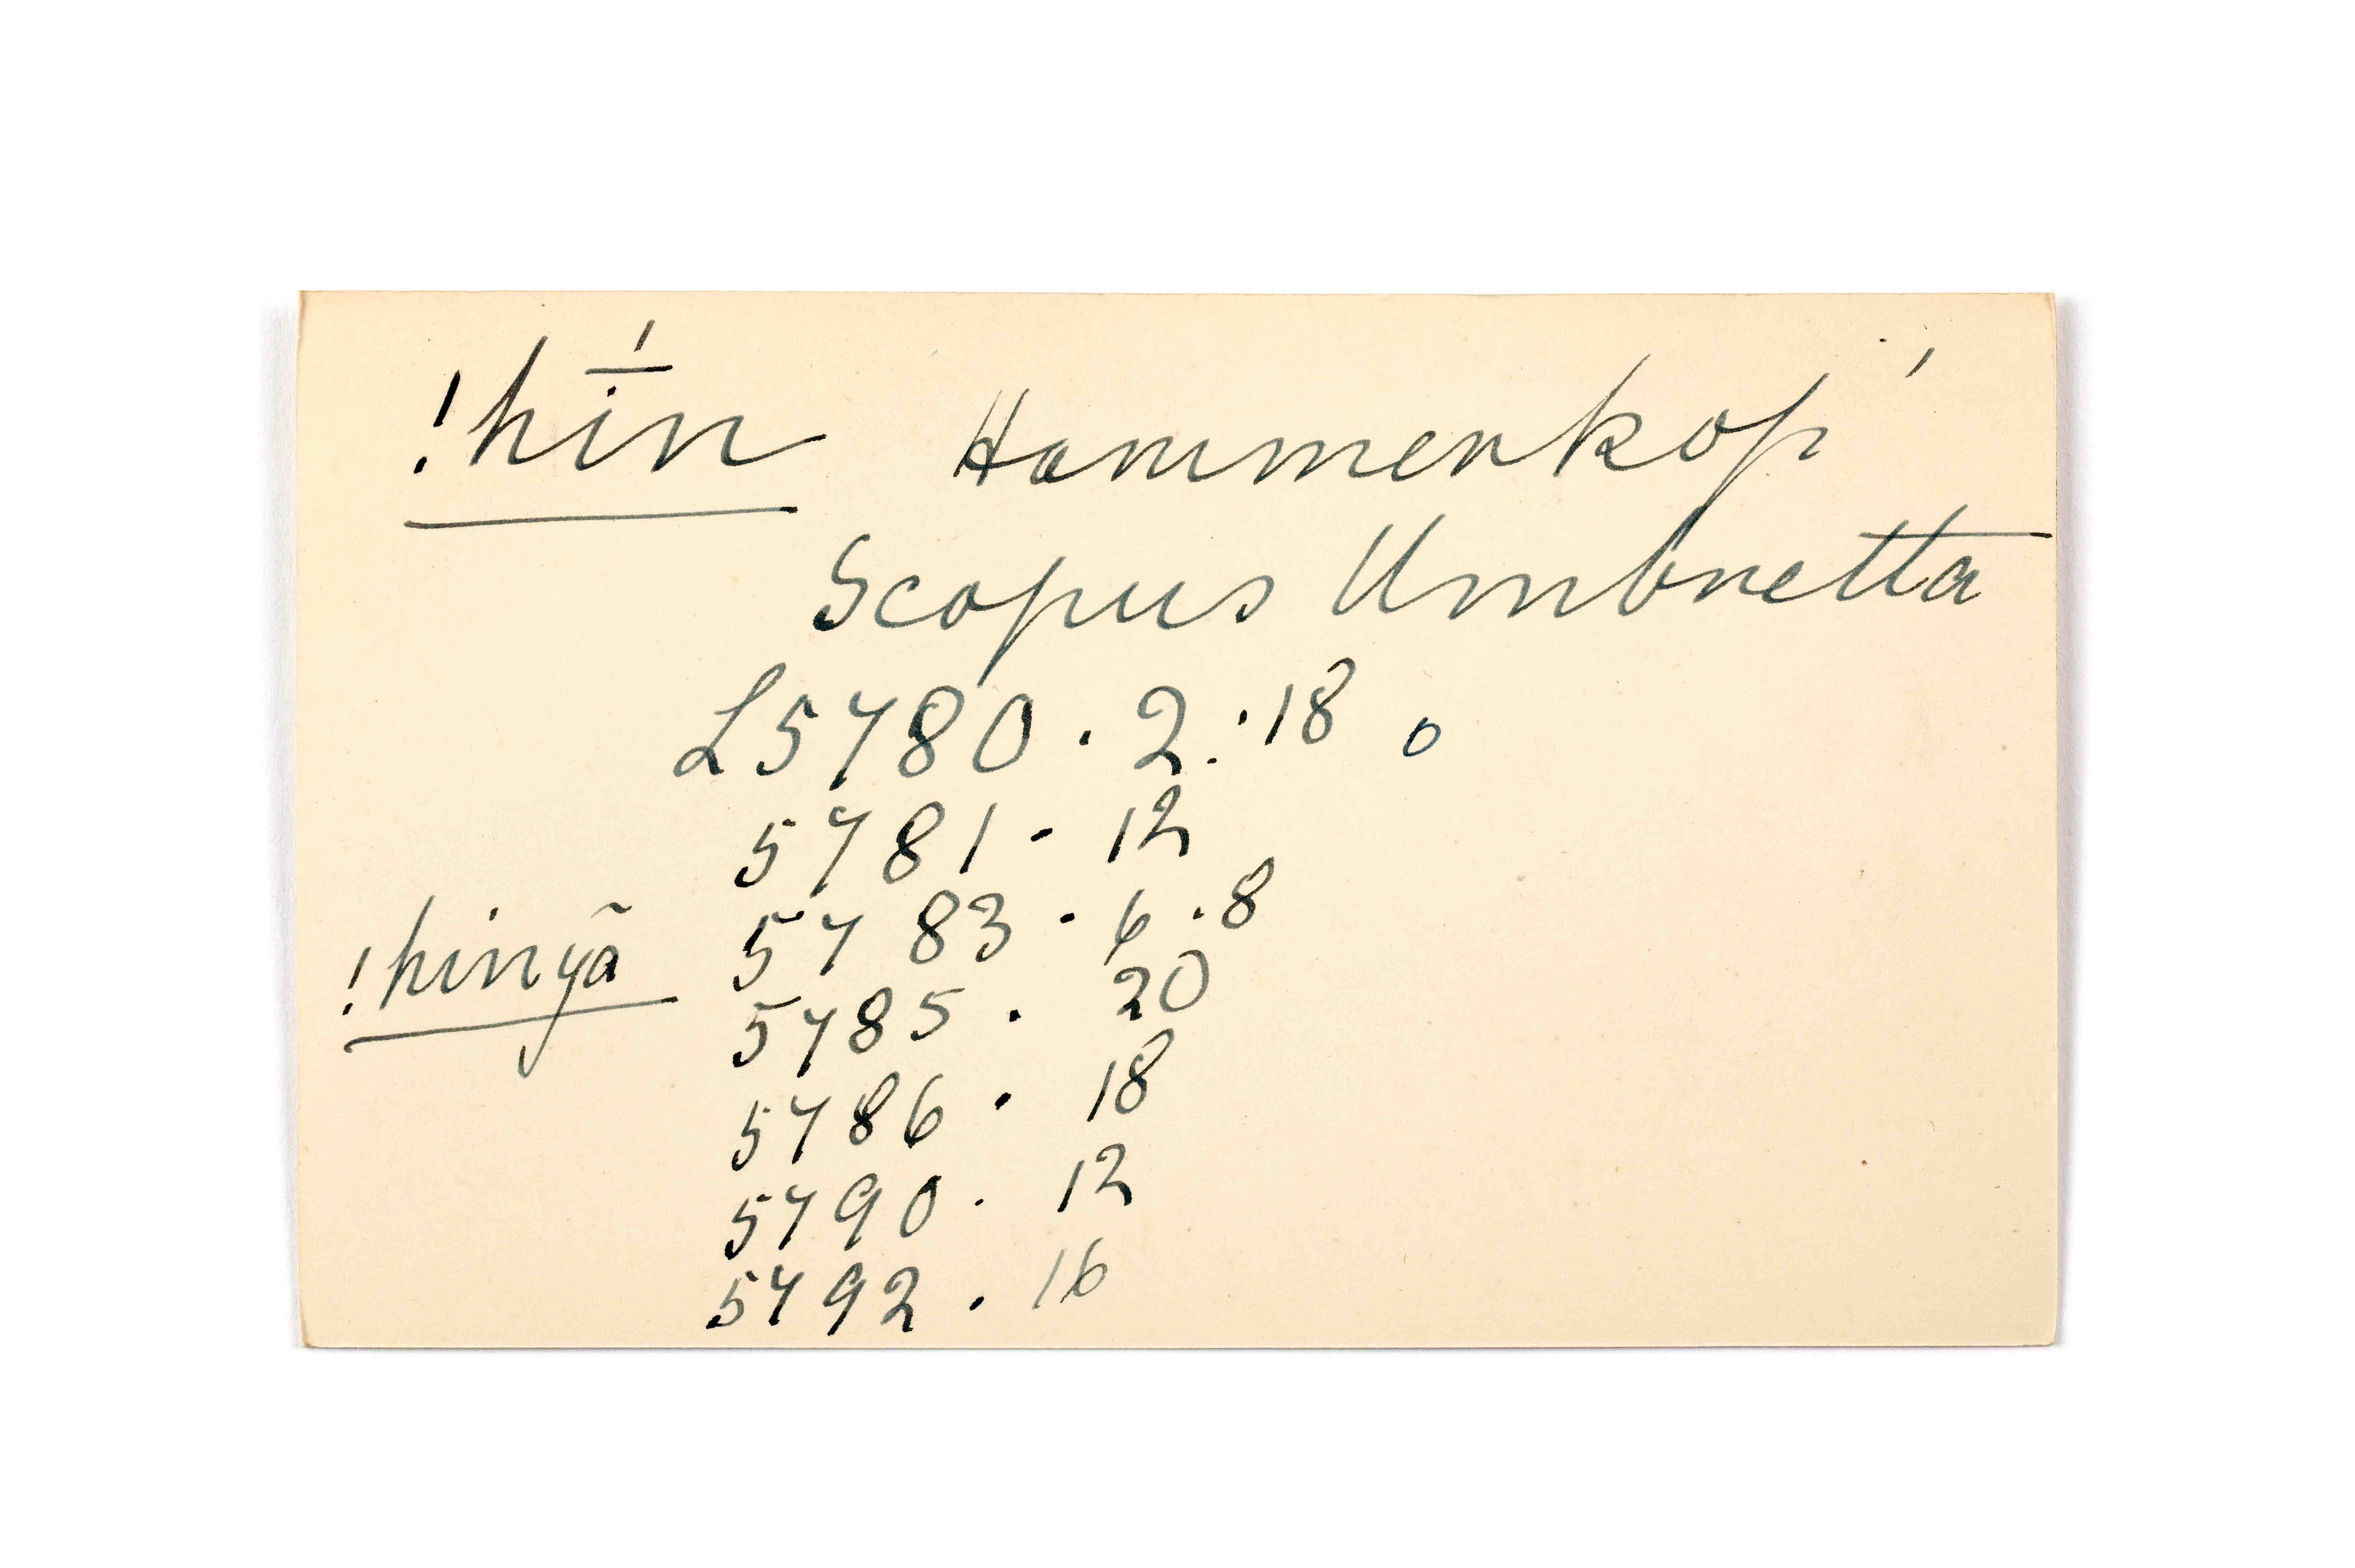 !hī́n Hammerkop'
Scopus Umbretta
L5780 . 2 . . 18 o
5781 - 12
5783 - 6 . 8
!hinyã
5785 . 20
5786 . 18
5790 . 12
5792 . 16